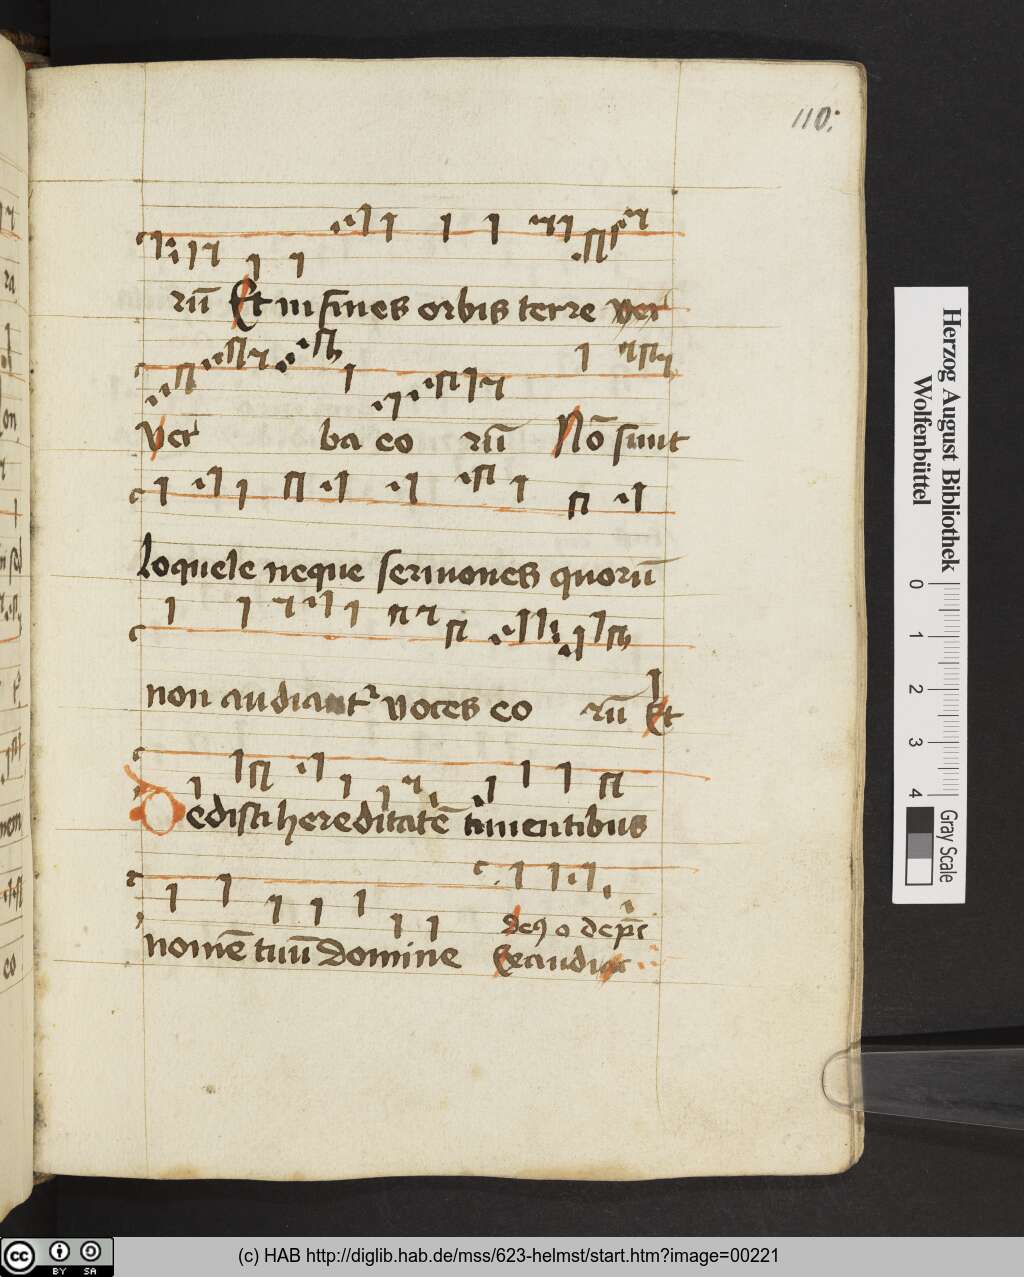 110.
rū Et in fines orbis terre ver
Ver ba eo rū Nō sunt
loquele neque sermones quorū
non audiantᷣ voces eo rū Et
Dedisti hereditatē timentibus
nomē tuū Domine
Exaudiat
Herzog August Bibliothek
Wolfenbüttel
0 1 2 3 4
Gray Scale
cc BY SA
(c) HAB http://diglib.hab.de/mss/623-helmst/start.htm?image=00221